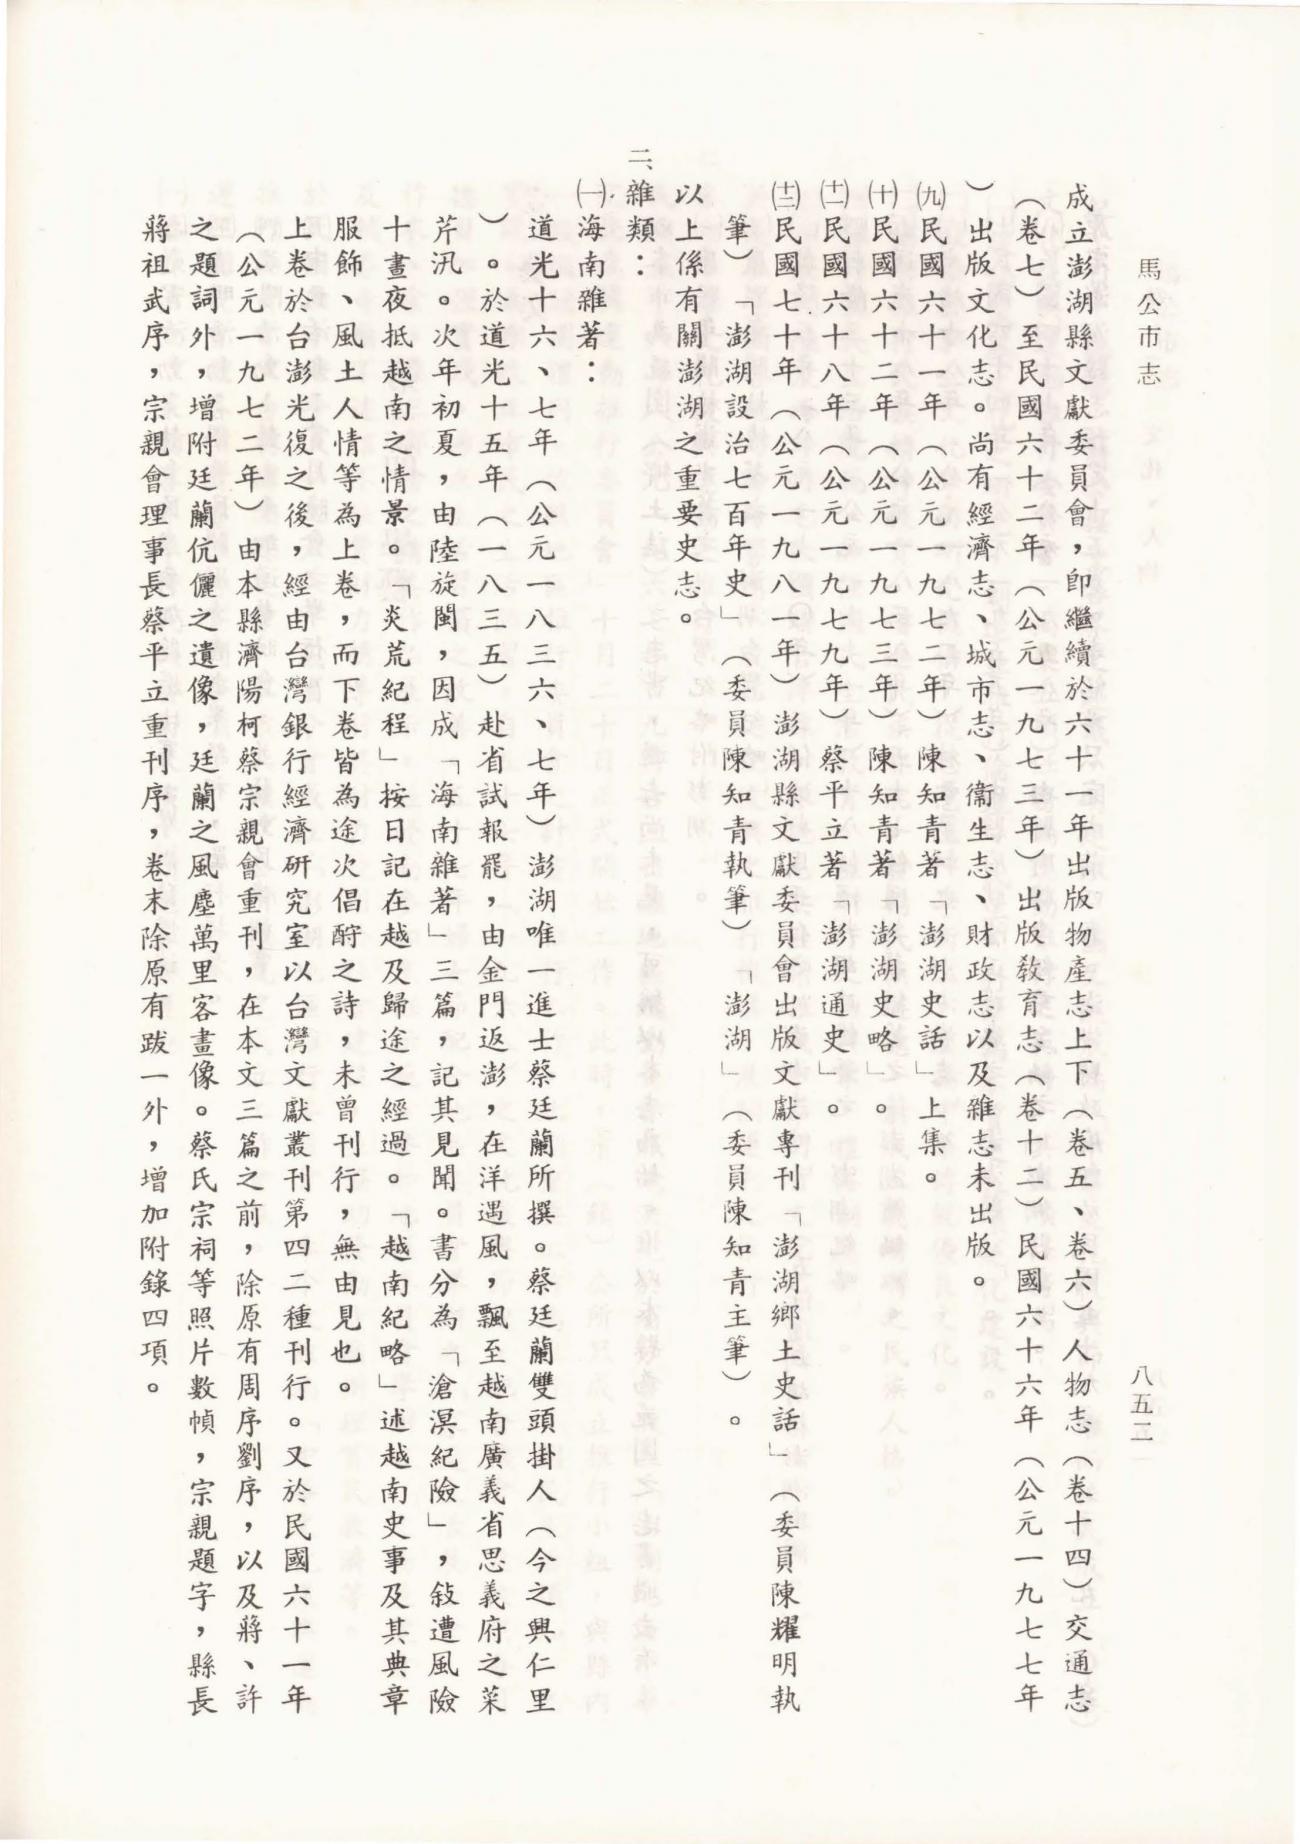 馬公市志
八五二
成立澎湖縣文獻委員會，即繼續於六十一年出版物產志上下（卷五、卷六）人物志（卷十四）交通志
（卷七）至民國六十二年（公元一九七三年）出版教育志（卷十二）民國六十六年（公元一九七七年
）出版文化志。尚有經濟志、城市志、衞生志、財政志以及雜志未出版。
㈨民國六十一年（公元一九七二年）陳知青著「澎湖史話」上集。
㈩民國六十二年（公元一九七三年）陳知青著「澎湖史略」。
(十一)民國六十八年（公元一九七九年）蔡平立著「澎湖通史」。
(十二)民國七十年（公元一九八一年）澎湖縣文獻委員會出版文獻專刊「澎湖鄉土史話」（委員陳耀明執
筆）「澎湖設治七百年史」（委員陳知青執筆）「澎湖」（委員陳知青主筆）。
以上係有關澎湖之重要史志。
二、雜類：
㈠海南雜著：
道光十六、七年（公元一八三六、七年）澎湖唯一進士蔡廷蘭所撰。蔡廷蘭雙頭掛人（今之興仁里
）。於道光十五年（一八三五）赴省試報罷，由金門返澎，在洋遇風，飄至越南廣義省思義府之菜
芹汛。次年初夏，由陸旋閩，因成「海南雜著」三篇，記其見聞。書分為「滄溟紀險」，敍遭風險
十晝夜抵越南之情景。「炎荒紀程」按日記在越及歸途之經過。「越南紀略」述越南史事及其典章
服飾、風土人情等為上卷，而下卷皆為途次倡酧之詩，未曾刊行，無由見也。
上卷於台澎光復之後，經由台灣銀行經濟研究室以台灣文獻叢刊第四二種刊行。又於民國六十一年
（公元一九七二年）由本縣濟陽柯蔡宗親會重刊，在本文三篇之前，除原有周序劉序，以及蔣、許
之題詞外，增附廷蘭伉儷之遺像，廷蘭之風塵萬里客畫像。蔡氏宗祠等照片數幀，宗親題字，縣長
蔣祖武序，宗親會理事長蔡平立重刊序，卷末除原有跋一外，增加附錄四項。